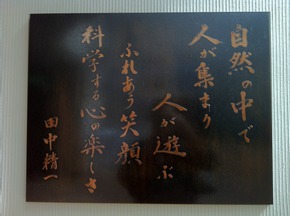 自然の中で
人が集まり
人が遊ぶ
ふれあう笑顔
科学する心の楽しさ
田中精一